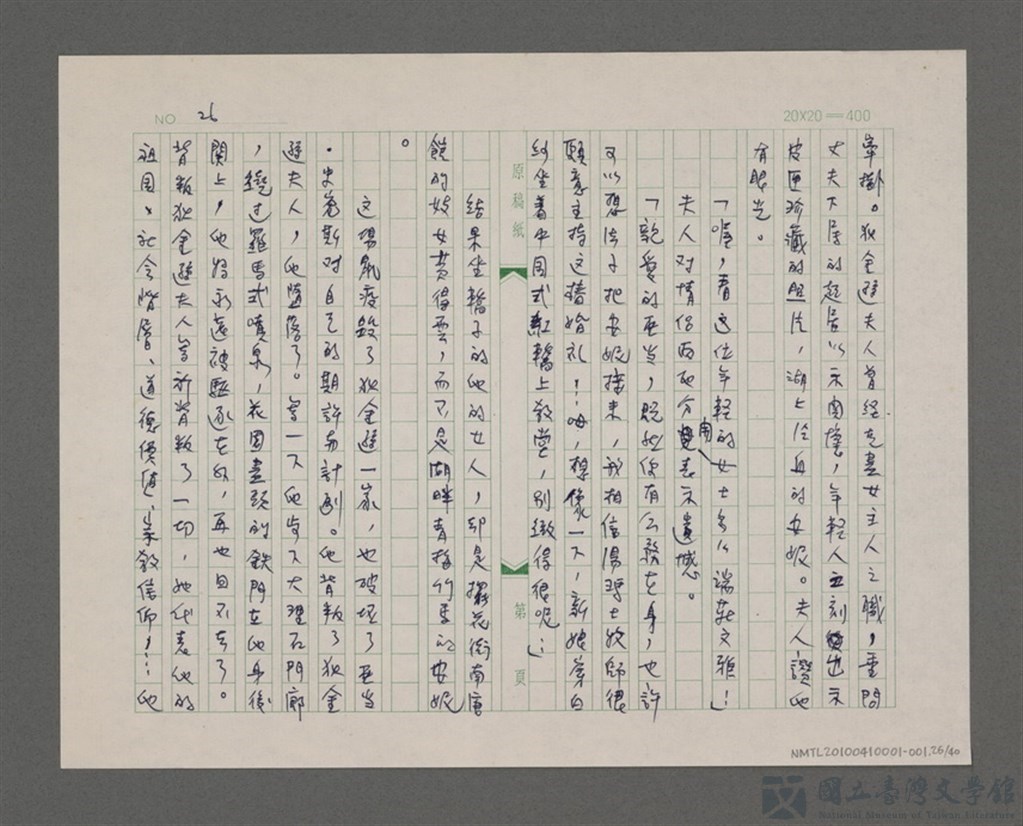 NO 26
20X20＝400
牽掛。狄金遜夫人曾經克盡女主人之職，垂問
丈夫不居的起居以示関懷，年輕人立刻出示
皮匣珍藏的照片，湖上泛舟的安妮。夫人讚他
有眼光。
「噯，看這位年輕的女士多么端莊文雅！」
夫人对情侶兩地分開表示遺憾。
「親愛的亞当，既然你有公務在身，也許
可以想法子把安妮接來，我相信湯瑪士牧師很
願意主持這樁婚礼！呣，想像一下，新娘蒙白
紗坐着中国式紅轎上教堂，別緻得很呢！」
原稿紙
第 頁
結果坐轎子的他的女人，却是擺花街南唐
館的妓女黃得雲，而不是湖畔青梅竹馬的安妮
。
這場鼠疫毀了狄金遜一家，也破壞了亞当
・史密斯对自己的期許与計劃。他背叛了狄金
遜夫人，他墮落了。当一下他步下大理石門廊
，繞过羅馬式噴泉，花园盡頭的鉄門在他身後
関上，他將永遠被驅逐在外，再也回不去了。
背叛狄金遜夫人等於背叛了一切，她代表他的
祖国、社会階層、道德價值、宗教信仰，…他
NMTL20100410001-001.26/40
國立臺灣文學館
National Museum of Taiwan Literature